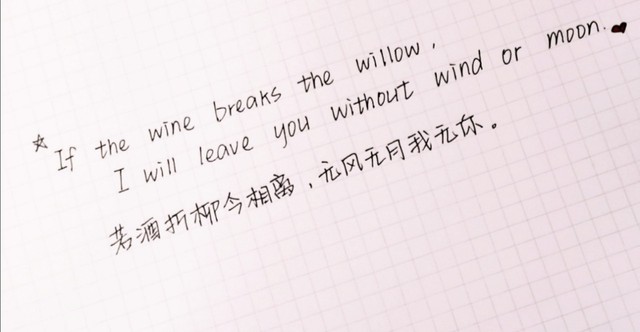 If the wine breaks the willow,
I will leave you without wind or moon.
若酒折柳今相离，无风无月我无你。